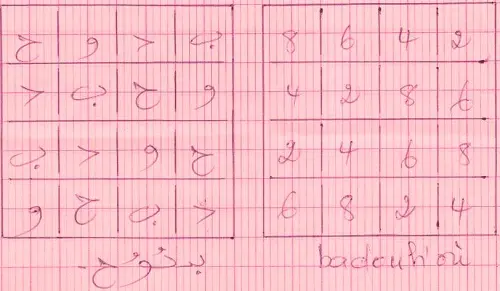 ب د و ح
و ح ب د
ح و د ب
د ب ح و
بدُوُح
8 6 4 2
4 2 8 6
2 4 6 8
6 8 2 4
badouh'où